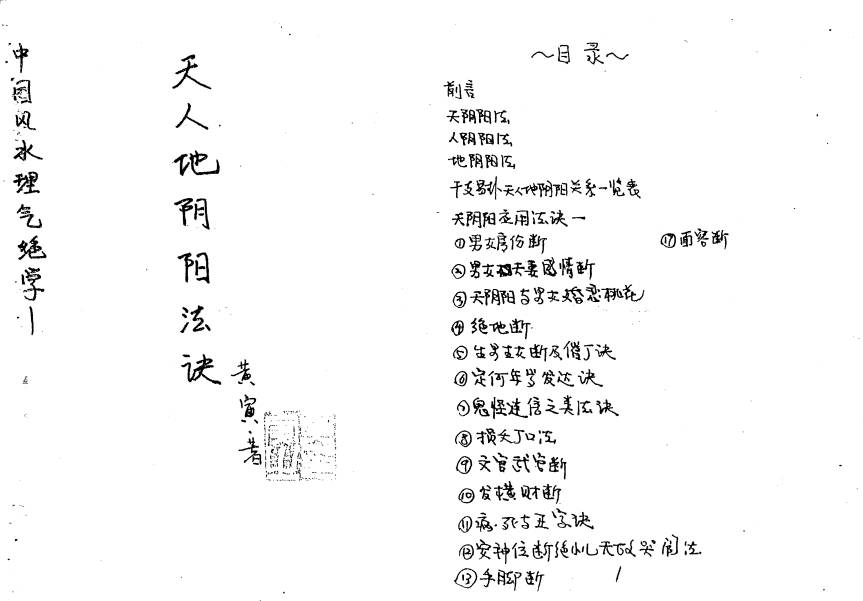 中国风水理气绝学一
天人地阴阳法诀
黄寅·著
~目录~
前言
天阴阳法
人阴阳法
地阴阳法
干支易卦天人地阴阳关系一览表
天阴阳应用法诀一
①男女房份断
⑰面容断
②男女夫妻感情断
③天阴阳与男女婚恋桃花
④绝地断
⑤生男生女断及催丁诀
⑥定何年岁发达诀
⑦鬼怪迷信之类法诀
⑧损夭丁口法
⑨文官武官断
⑩发横财断
⑪病·死与正字诀
⑫安神位断绝小儿无故哭闹法
⑬手脚断
1